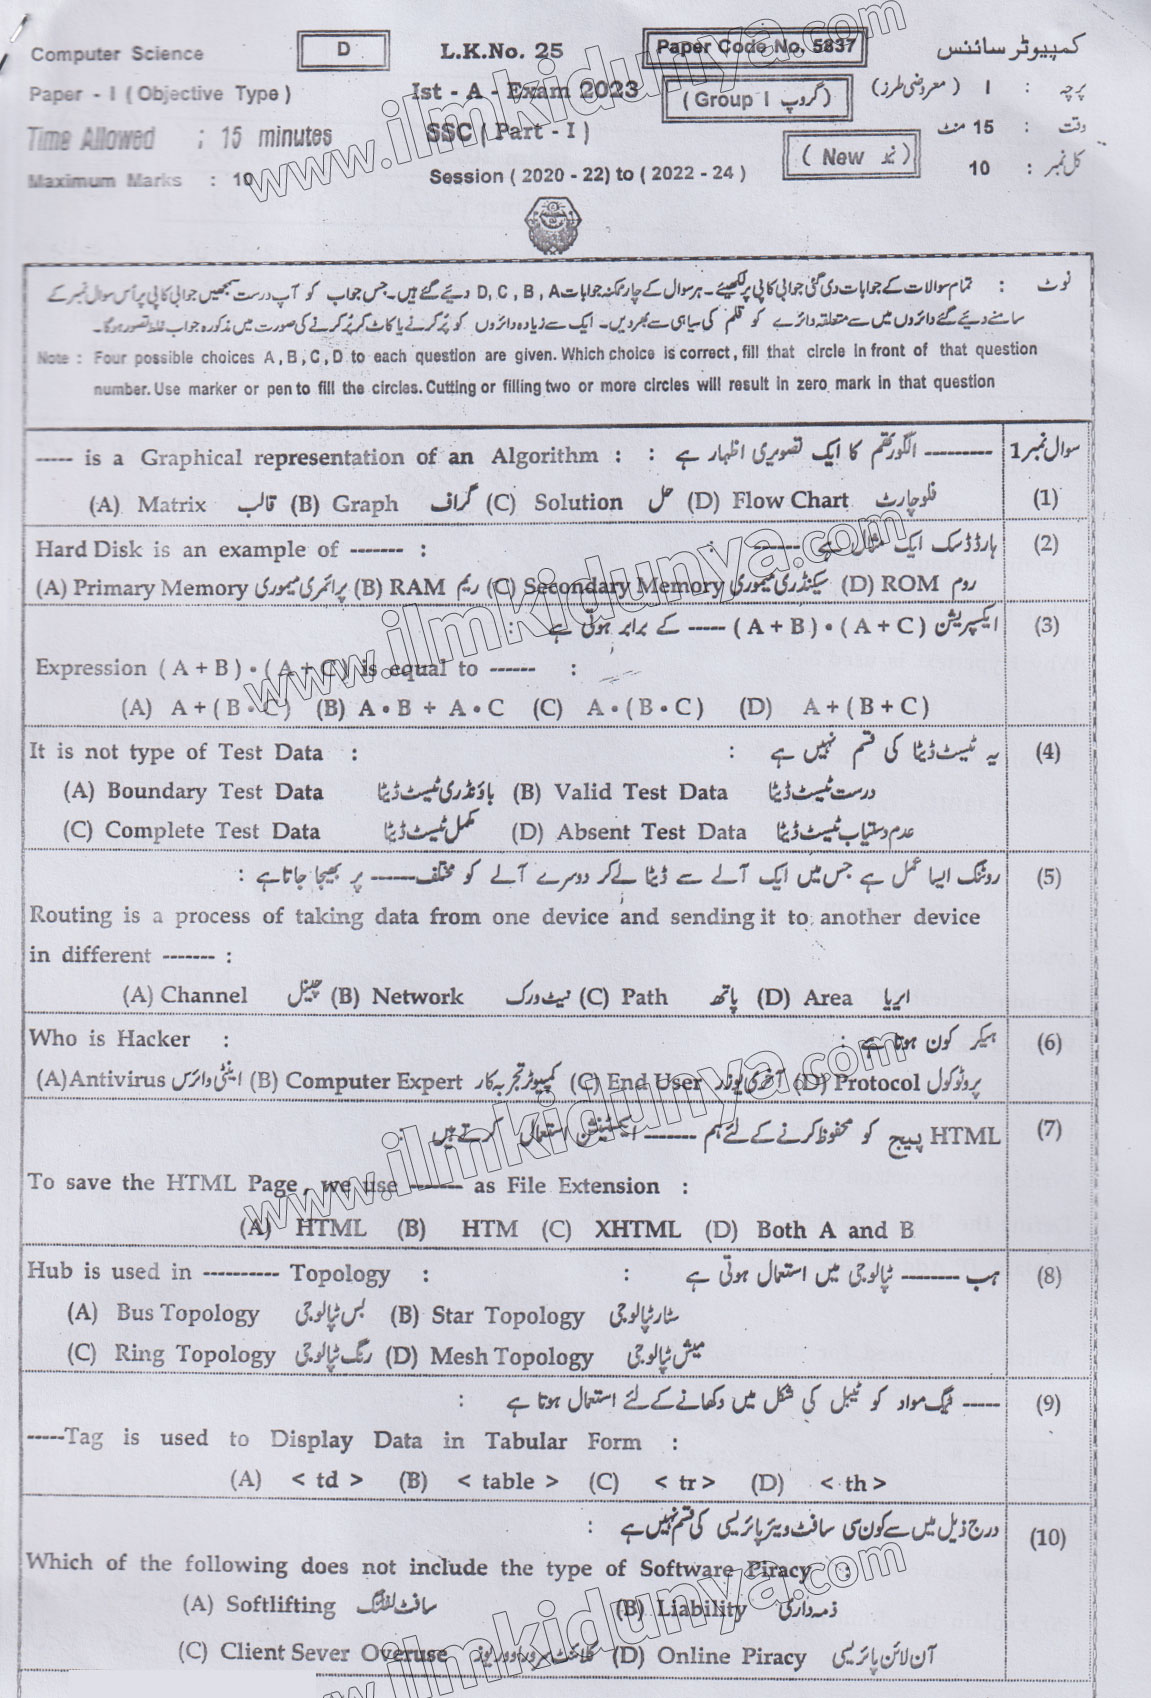 Computer Science D L.K.No. 25 Paper Code No. 5837 کمپیوٹر سائنس
Paper - I ( Objective Type ) Ist - A - Exam 2023 ( Group I گروپ ) پرچہ : I ( معروضی طرز )
Time Allowed : 15 minutes SSC ( Part - I ) وقت : 15 منٹ
Maximum Marks : 10 Session ( 2020 - 22 ) to ( 2022 - 24 ) ( New نیو ) کل نمبر : 10
نوٹ : تمام سوالات کے جوابات دی گئی جوابی کاپی پر لکھیئے۔ ہر سوال کے چار ممکنہ جوابات D, C, B, A دیئے گئے ہیں۔ جس جواب کو آپ درست سمجھیں جوابی کاپی پر اُس سوال نمبر کے
سامنے دیئے گئے دائروں میں سے متعلقہ دائرے کو قلم کی سیاہی سے بھر دیں۔ ایک سے زیادہ دائروں کو پُر کرنے یا کاٹ کر پُر کرنے کی صورت میں مذکورہ جواب غلط تصور ہو گا۔
Note : Four possible choices A , B , C , D to each question are given. Which choice is correct , fill that circle in front of that question
number. Use marker or pen to fill the circles. Cutting or filling two or more circles will result in zero mark in that question
----- is a Graphical representation of an Algorithm : : الگورتھم کا ایک تصویری اظہار ہے --------- سوال نمبر 1
(A) Matrix قالب (B) Graph گراف (C) Solution حل (D) Flow Chart فلو چارٹ (1)
Hard Disk is an example of ------- : : ہارڈ ڈسک ایک مثال ہے ------- (2)
(A) Primary Memory پرائمری میموری (B) RAM ریم (C) Secondary Memory سیکنڈری میموری (D) ROM روم
ایکسپریشن ( A + B ) • ( A + C ) ----- کے برابر ہوتی ہے : (3)
Expression ( A + B ) • ( A + C ) is equal to ------ :
(A) A + ( B • C ) (B) A • B + A • C (C) A • ( B • C ) (D) A + ( B + C )
It is not type of Test Data : : یہ ٹیسٹ ڈیٹا کی قسم نہیں ہے (4)
(A) Boundary Test Data باؤنڈری ٹیسٹ ڈیٹا (B) Valid Test Data درست ٹیسٹ ڈیٹا
(C) Complete Test Data مکمل ٹیسٹ ڈیٹا (D) Absent Test Data عدم دستیاب ٹیسٹ ڈیٹا
روٹنگ ایسا عمل ہے جس میں ایک آلے سے ڈیٹا لے کر دوسرے آلے کو مختلف ------ پر بھیجا جاتا ہے : (5)
Routing is a process of taking data from one device and sending it to another device
in different ------- :
(A) Channel چینل (B) Network نیٹ ورک (C) Path پاتھ (D) Area ایریا
Who is Hacker : : ہیکر کون ہوتا ہے (6)
(A) Antivirus اینٹی وائرس (B) Computer Expert کمپیوٹر تجربہ کار (C) End User آخری یوزر (D) Protocol پروٹوکول
HTML پیج کو محفوظ کرنے کے لئے ہم ------- ایکسٹینشن استعمال کرتے ہیں : (7)
To save the HTML Page, we use ------- as File Extension :
(A) HTML (B) HTM (C) XHTML (D) Both A and B
Hub is used in ---------- Topology : : ہب -------- ٹپالوجی میں استعمال ہوتی ہے (8)
(A) Bus Topology بس ٹپالوجی (B) Star Topology سٹار ٹپالوجی
(C) Ring Topology رنگ ٹپالوجی (D) Mesh Topology میش ٹپالوجی
----- ٹیگ مواد کو ٹیبل کی شکل میں دکھانے کے لئے استعمال ہوتا ہے : (9)
-----Tag is used to Display Data in Tabular Form :
(A) < td > (B) < table > (C) < tr > (D) < th >
درج ذیل میں سے کون سی سافٹ ویئر پائریسی کی قسم نہیں ہے : (10)
Which of the following does not include the type of Software Piracy :
(A) Softlifting سافٹ لفٹنگ (B) Liability ذمہ داری
(C) Client Sever Overuse کلائنٹ سرور اوور یوز (D) Online Piracy آن لائن پائریسی
www.ilmkidunya.com
www.ilmkidunya.com
www.ilmkidunya.com
www.ilmkidunya.com